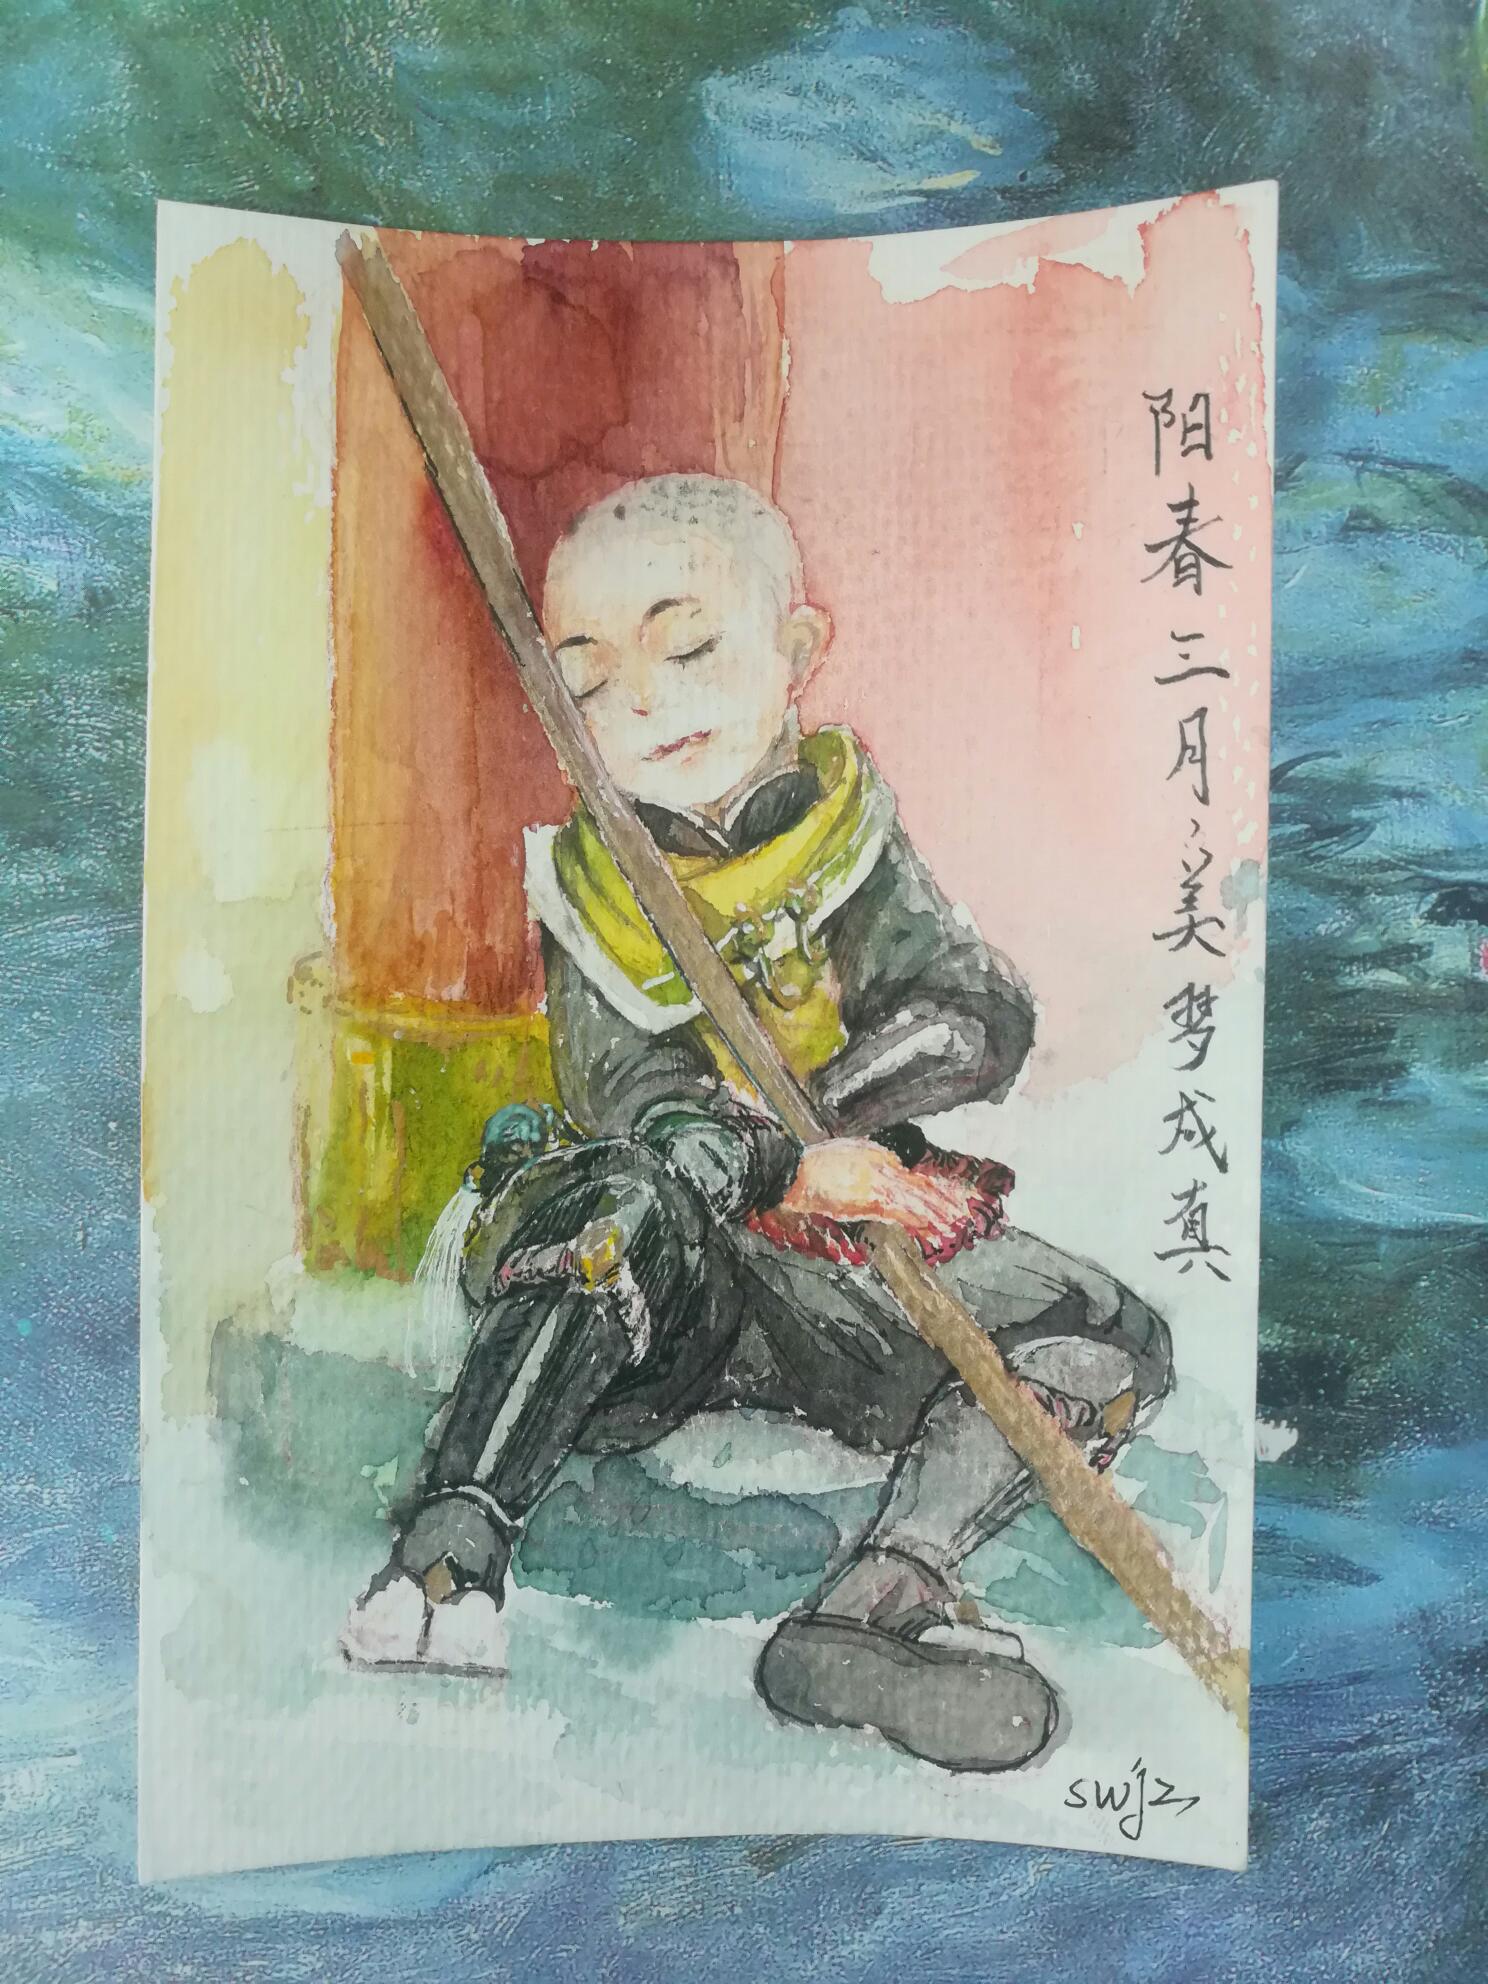 阳春三月，美梦成真
swjz